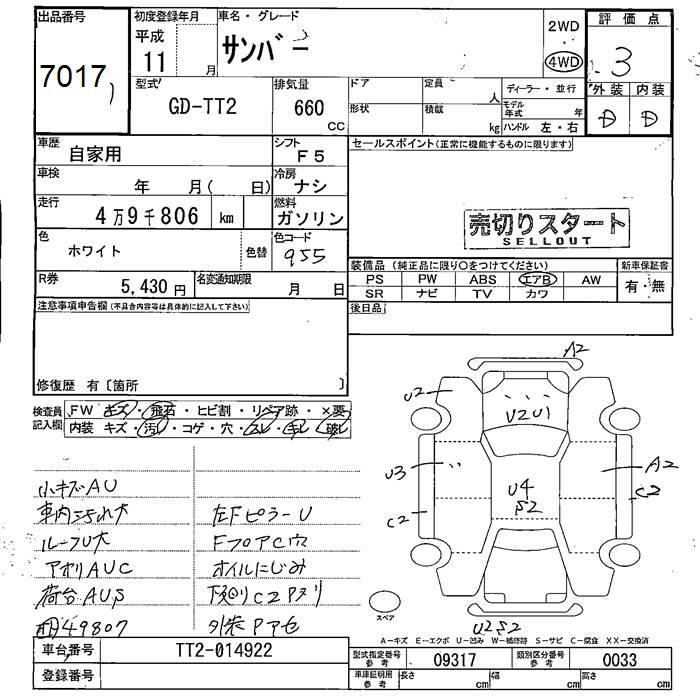 出品番号 初度登録年月 車名・グレード 評価点
7017 平成 11 月 サンバー 2WD 4WD 3
型式 GD-TT2 排気量 660 CC
ドア 定員 人 ディーラー・並行 外装 内装
形状 積載 kg モデル年式 年 ハンドル 左・右 D D
車歴 自家用 シフト F5 セールスポイント(正常に機能するものに限ります)
車検 年 月( 日) 冷房 ナシ
走行 4万9千806 km 燃料 ガソリン
売切りスタート
SELLOUT
色 ホワイト 色替 色コード 955
装備品 (純正品に限り○をつけてください) 新車保証書
R券 5,430円 名変通知期限 月 日
PS PW ABS エアB AW 有・無
SR ナビ TV カワ
注意事項申告欄(不具合内容等は具体的に記入して下さい) 後日品
修復歴 有〔箇所 〕
検査員記入欄 FW キズ・飛石・ヒビ割・リペア跡・×要
内装 キズ・汚れ・コゲ・穴・スレ・キレ・破レ
A2
U2
U2U1
U3
A2
U4
S2
C2
C2
小キズAU
車内汚れ大 左Fピラー U
ルーフU大 FフロアC穴
アオリAUC オイルにじみ
荷台AUS 下廻りC2
49807 外装
スペア
U2S2
A-キズ E-エクボ U-凹み W-補修跡 S-サビ C-腐食 XX-交換済
車台番号 TT2-014922 型式指定番号 参考 09317 類別区分番号 参考 0033
登録番号 車庫証明用 参考 長さ cm 幅 cm 高さ cm